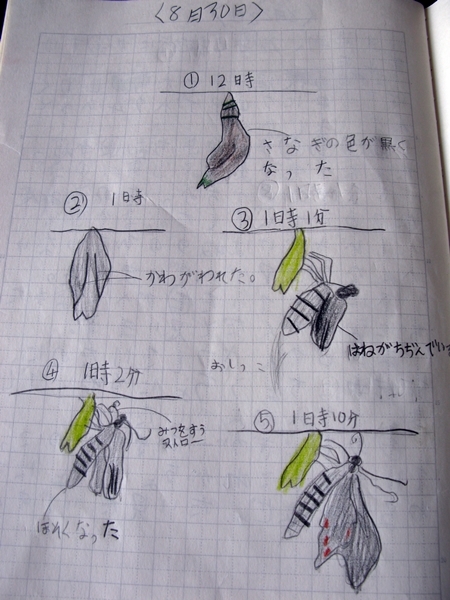 〈8月30日〉
① 12時
さなぎの色が黒く
なった
② 1時
かわがわれた。
③ 1時1分
はねがちぢんでい
おしっこ
④ 1時2分
みつをすう
ストロー
ほそくなった
⑤ 1時10分